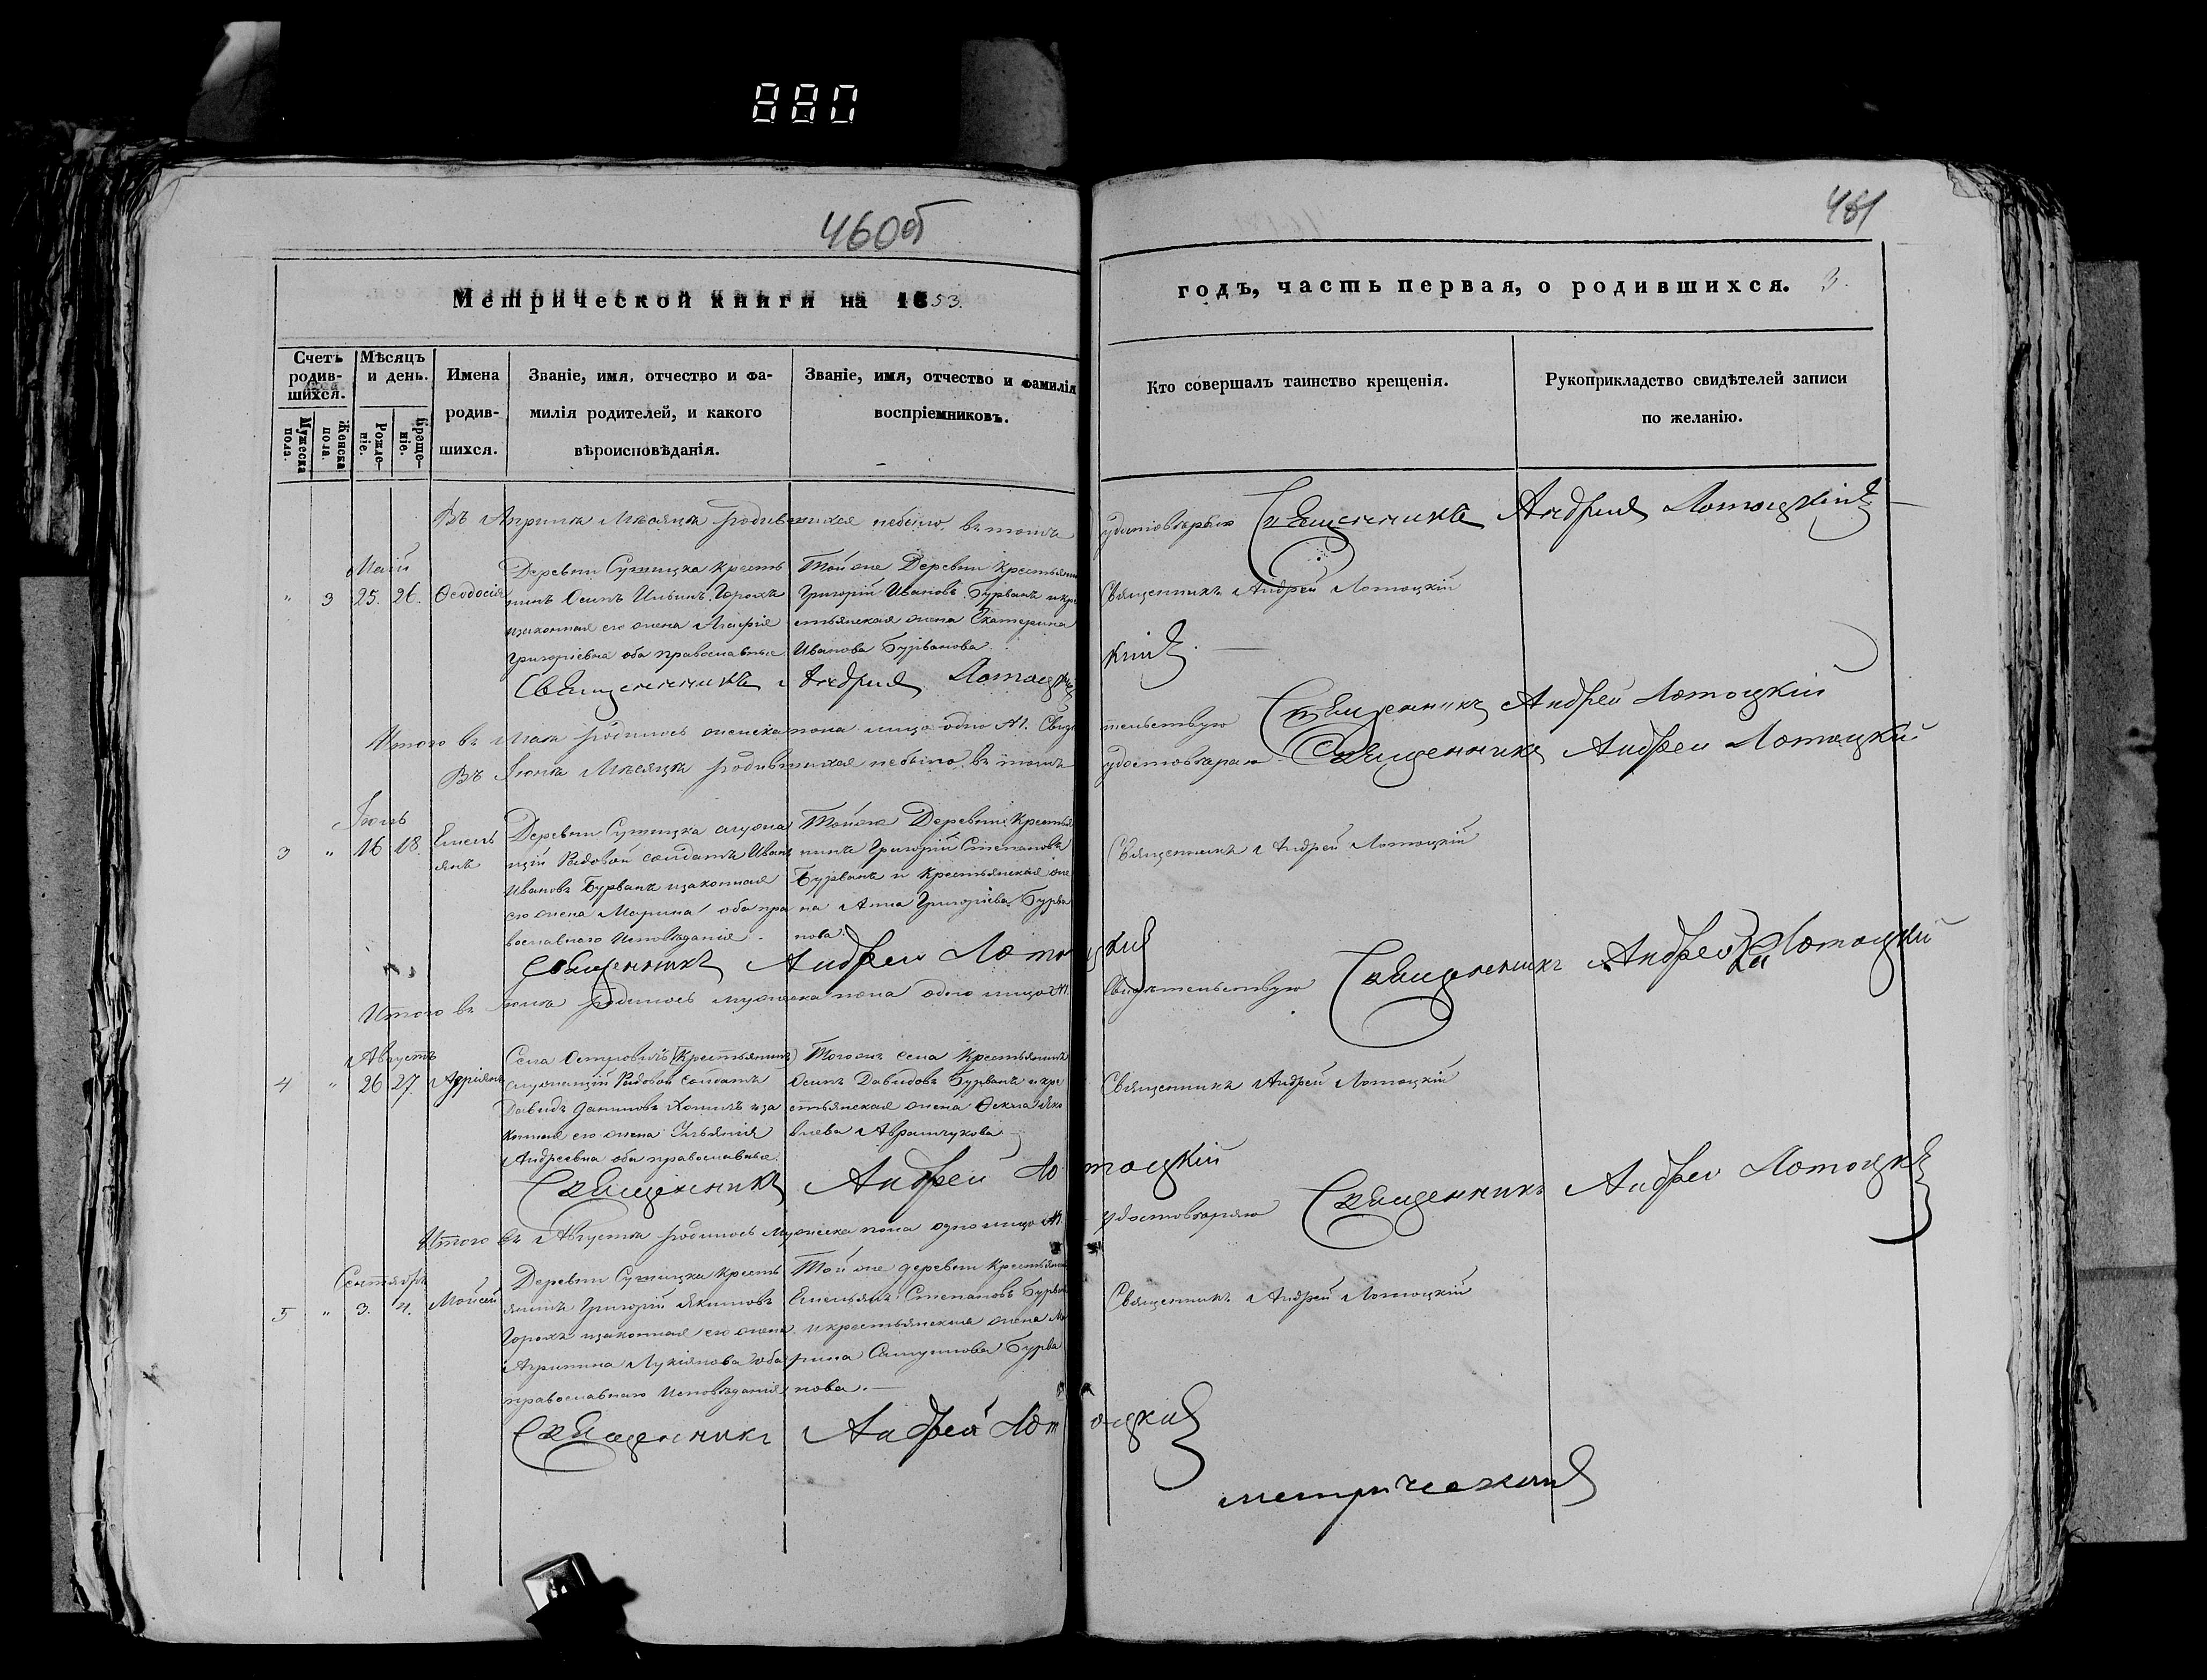 880
460об
461
Метрической книги на 1853.
годъ, часть первая, о родившихся. 3.
Счетъ родив-шихся.
Мужеска пола.
Женска пола.
Мѣсяцъ и день.
Рожде-ніе.
Креще-ніе.
Имена
родив-
шихся.
Званіе, имя, отчество и фа-
милія родителей, и какого
вѣроисповѣданія.
Званіе, имя, отчество и фамилія
воспріемниковъ.
Кто совершалъ таинство крещенія.
Рукоприкладство свидѣтелей записи
по желанію.
Въ Априлѣ Мѣсяцѣ родившихся небыло, въ томъ удостовѣряю Священникъ Андрей Лотоцкій
Май
" 3 25. 26. Ѳеодосія
Деревни крестья
нинъ Осипъ Горохъ
изаконная его жена
Григоріевна оба православные
Той же Деревни Крестьянинъ
Григорій Ивановъ Бурванъ икре
стьянская жена Екатерина
Иванова Бурванова
Священникъ Андрей Лотоцкій
Священникъ Андрей Лотоцкій
Итого въ Маѣ родилось женска пола лицо одно №1. Свидѣтельствую Священникъ Андрей Лотоцкій
Въ Іюнѣ Мѣсяцѣ родившихся небыло въ томъ удостовѣряю Священникъ Андрей Лотоцкій
Іюль
3 " 16 18. Емель
янъ
Деревни служа
щій Рядовой солдатъ Иванъ
Ивановъ Бурванъ изаконная
его жена Марина оба пра
вославнаго Исповѣданія
Той же Деревни Крестья
нинъ Григорій Степановъ
Бурванъ и Крестьянская же
на Анна Григоріева Бурва
нова.
Священникъ Андрей Лотоцкій
Священникъ Андрей Лотоцкій
Итого въ Іюлѣ родилось мужеска пола одно лицо №1. Свидѣтельствую Священникъ Андрей Лотоцкій
Августъ
4 " 26 27. Адріянъ
Села (Крестьянинъ)
служащій Рядовой солдатъ
Давидъ изa
конная его жена
Андреевна оба православные.
Того же села Крестьянинъ
Осипъ Давидовъ Бурванъ икре
стьянская жена Ѳекла Яко
влева Аврамчукова
Священникъ Андрей Лотоцкій
Священникъ Андрей Лотоцкій
Итого въ Августѣ родилось Мужеска пола одно лицо №1. удостовѣряю Священникъ Андрей Лотоцкій
Сентябрь
5 " 3. 4. Моисей
Деревни Кресть
янинъ Григорій Якимовъ
Горохъ изаконная его жена
Агрипина Лукіянова оба
православнаго Исповѣданія
Той же деревни Крестьянинъ
Емельянъ Степановъ Бурванъ
икрестьянская жена Ма
рина Самуилова Бурва
нова.
Священникъ Андрей Лотоцкій
Священникъ Андрей Лотоцкій
метрической